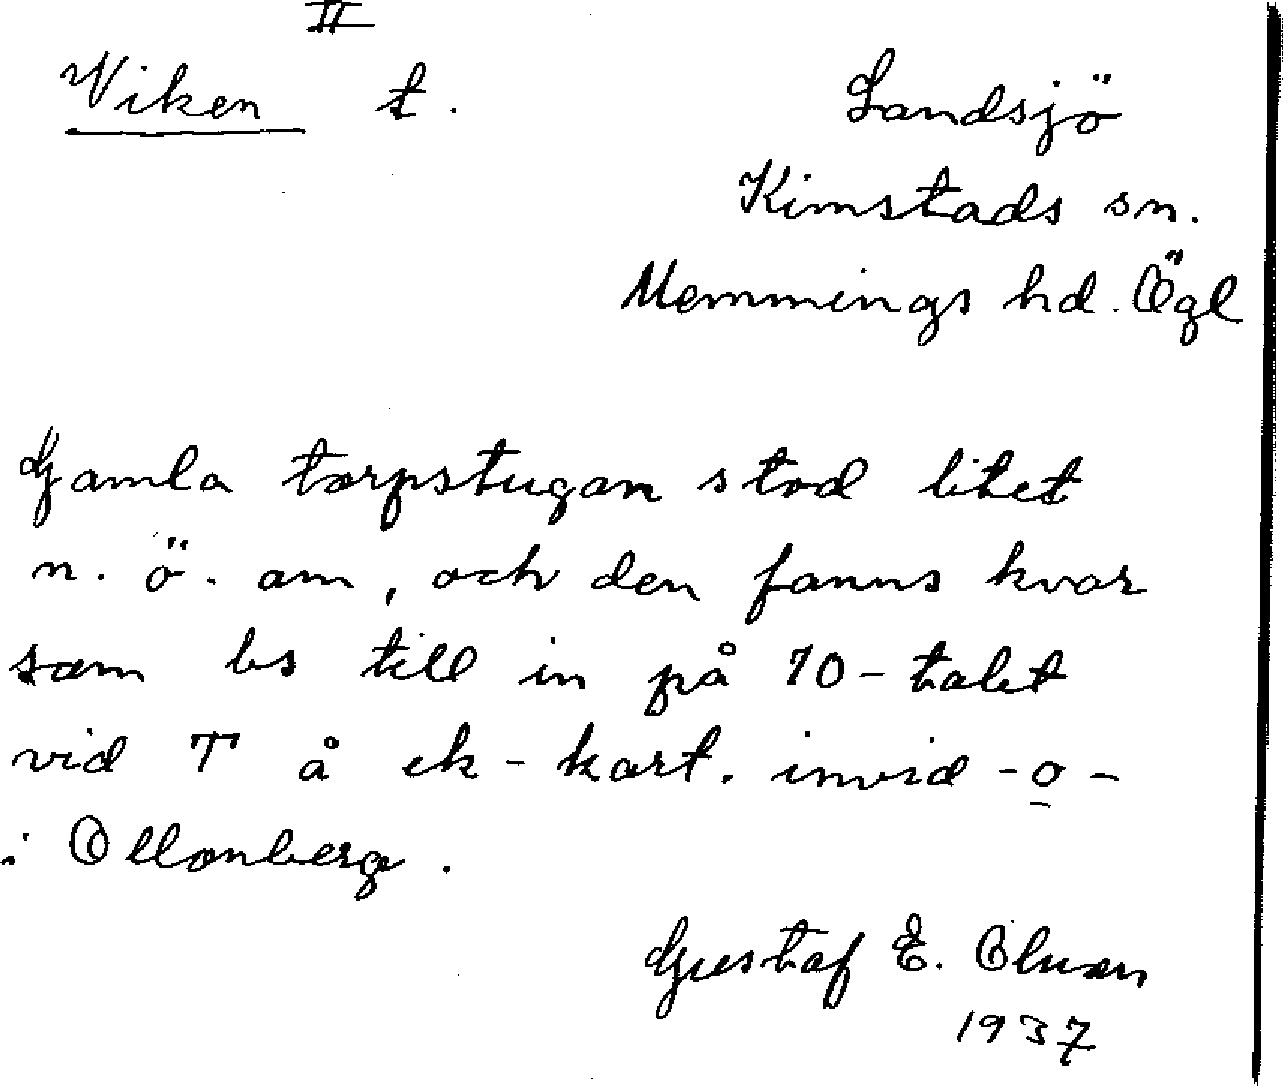 II
Viken t. Landsjö
Kimstads sn.
Memmings hd. Ögl
Gamla torpstugan stod litet
n. ö. om, och den fanns kvar
som bs till in på 70-talet
vid T å ek-kart. invid -o-
i Ollonberg.
Gustaf E.
1937